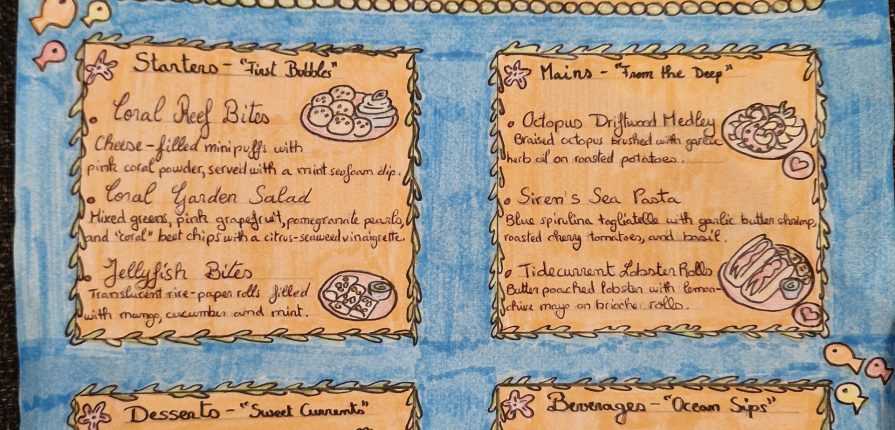 Starters - "First Bubbles"
• Coral Reef Bites
Cheese-filled mini puffs with
pink coral powder, served with a mint seafoam dip.
• Coral Garden Salad
Mixed greens, pink grapefruit, pomegranate pearls,
and "coral" beet chips with a citrus-seaweed vinaigrette.
• Jellyfish Bites
Translucent rice-paper rolls filled
with mango, cucumber and mint.
Mains - "From the Deep"
• Octopus Driftwood Medley
Braised octopus brushed with garlic
herb oil on roasted potatoes.
• Siren's Sea Pasta
Blue spirulina tagliatelle with garlic butter shrimp,
roasted cherry tomatoes, and basil.
• Tidecurrent Lobster Rolls
Butter poached lobster with lemon-
chive mayo on brioche rolls.
Desserts - "Sweet Currents"
Beverages - "Ocean Sips"